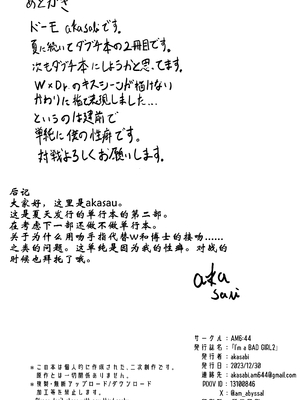 あとがき
ドーモ akasabiです。
夏に続いてダブチ本の2冊目です。
次もダブチ本にしようかと思ってます。
W×Dr.のキスシーンが描けない
かわりに指で表現しました…
というのは建前で
単純に僕の性癖です。
対戦よろしくお願いします。
后记
大家好，这里是akasau。
这是夏天发行的单行本的第二部。
在考虑下一部还做不做单行本。
关于为什么用吻手指代替W和博士的接吻……
之类的问题。这单纯是因为我的性癖。对战的
时候也拜托了哦。
aka
sabi
サークル：AM6:44
発行誌名：「I'm a BAD GIRL2」
発行者：akasabi
発行日：2023/12/30
連絡先：akasabi.am644@gmail.com
PIXIV ID：13100846
X：@am_abyssal
※この本は個人的に作成された、二次創作です。
原作とは一切関係ありません。
※複製・無断アップロード/ダウンロード
加工等も禁止しております。